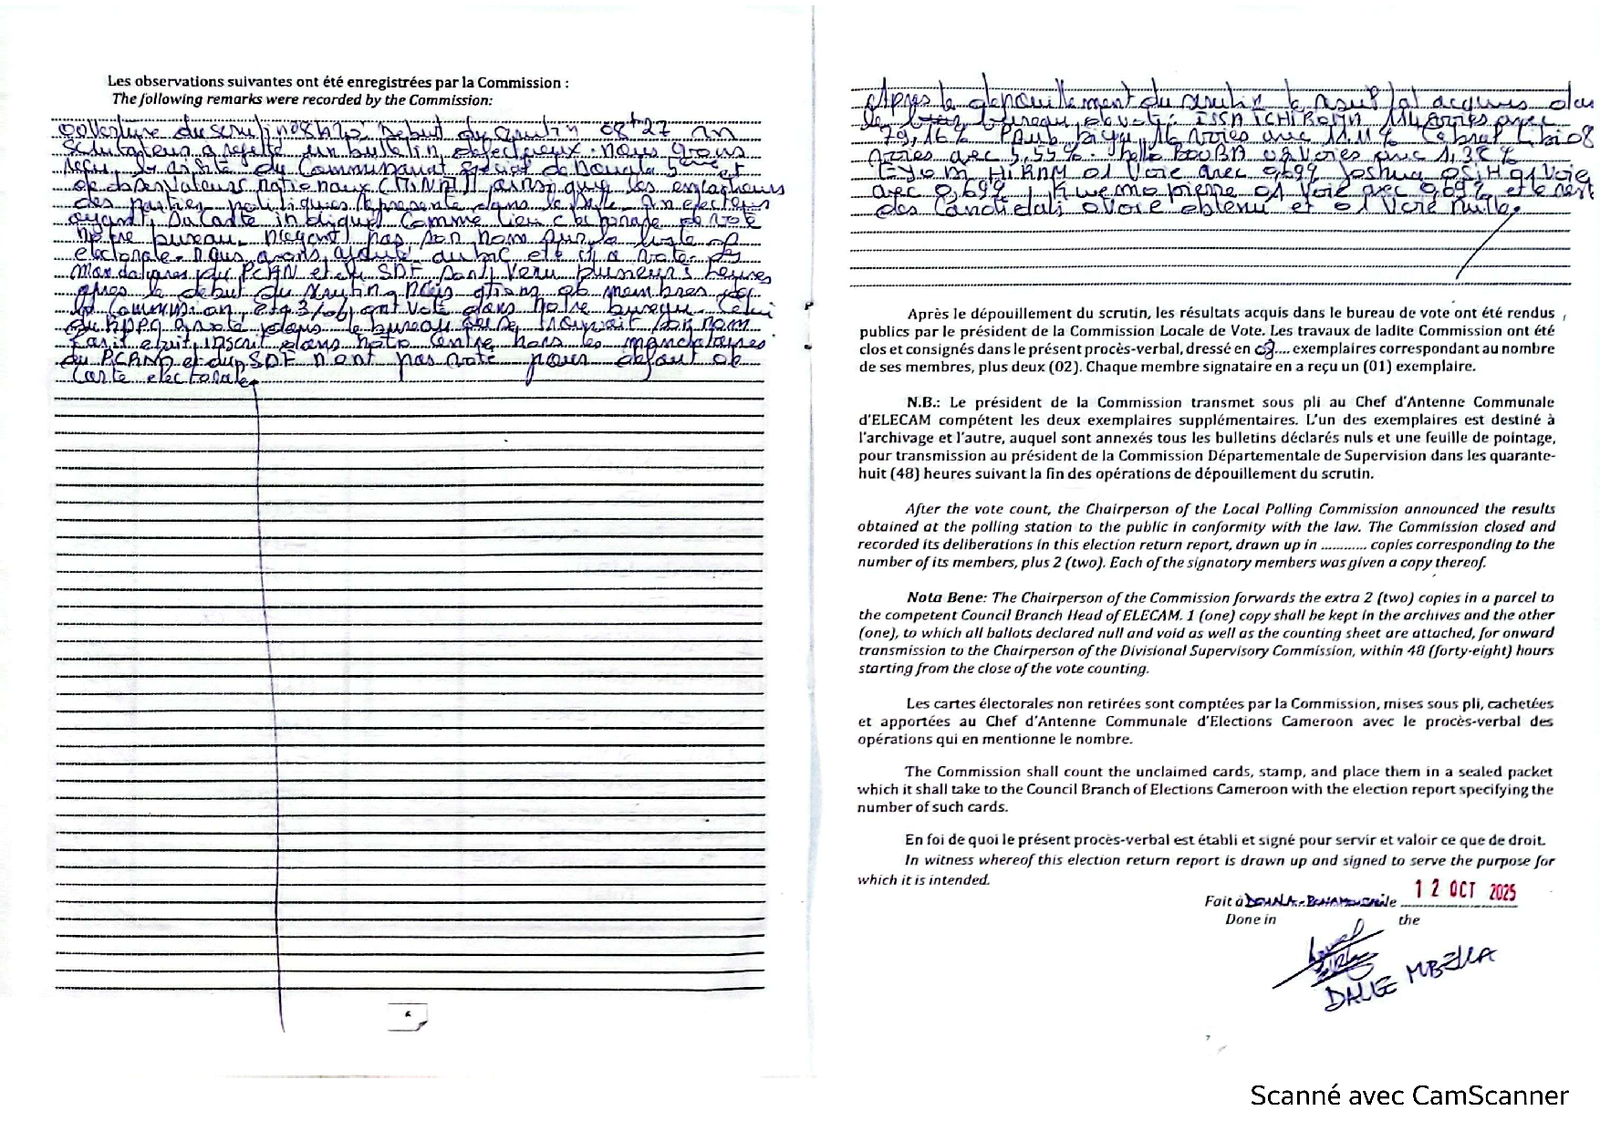 Les observations suivantes ont été enregistrées par la Commission :
The following remarks were recorded by the Commission:
Ouverture du scrutin 08h Debut du scrutin 08h27 un
scrutateur a rejetté un bulletin defectueux. Nous avons
reçu la visite du Commandant de Douala 5ème et
de observateurs nationaux ainsi que les
des parties politiques represente dans la salle. Un electeur
ayant sa carte indiquer comme lieu de vote
notre bureau n'ayant pas son nom sur la liste
electorale. Nous avons ajouté au bic et il a voté. Les
mandataires du PCRN et du SDF sont venu plusieurs heures
apres le debut du scrutin. Nous étions 06 membres de
la Commission, et 03/06 ont voté dans notre bureau. Celui
du RDPC a voté dans le bureau ou se trouvait son nom
car il etait inscrit dans notre centre hors les mandataires
du PCRN et du SDF n'ont pas voté pour defaut de
Carte electorale.
6
Après le depouillement du scrutin le resultat acquis dans
le bureau de vote : ISSA TCHIROMA 114 voies avec
79,16% Paul biya 16 voies avec 11.11% Cabral Libii 08
voies avec 5,55%. bello BOUBA 02 voies avec 1,38%
EYOM HIRAM 01 Voie avec 0,69% Joshua OSIH 01 Voie
avec 0,69% Kwemo pierre 01 Voie avec 0,69% et le reste
des Candidats 0 Voie obtenu et 01 Voie nulle.
Après le dépouillement du scrutin, les résultats acquis dans le bureau de vote ont été rendus
publics par le président de la Commission Locale de Vote. Les travaux de ladite Commission ont été
clos et consignés dans le présent procès-verbal, dressé en 08.... exemplaires correspondant au nombre
de ses membres, plus deux (02). Chaque membre signataire en a reçu un (01) exemplaire.
N.B.: Le président de la Commission transmet sous pli au Chef d'Antenne Communale
d'ELECAM compétent les deux exemplaires supplémentaires. L'un des exemplaires est destiné à
l'archivage et l'autre, auquel sont annexés tous les bulletins déclarés nuls et une feuille de pointage,
pour transmission au président de la Commission Départementale de Supervision dans les quarante-
huit (48) heures suivant la fin des opérations de dépouillement du scrutin.
After the vote count, the Chairperson of the Local Polling Commission announced the results
obtained at the polling station to the public in conformity with the law. The Commission closed and
recorded its deliberations in this election return report, drawn up in ............ copies corresponding to the
number of its members, plus 2 (two). Each of the signatory members was given a copy thereof.
Nota Bene: The Chairperson of the Commission forwards the extra 2 (two) copies in a parcel to
the competent Council Branch Head of ELECAM. 1 (one) copy shall be kept in the archives and the other
(one), to which all ballots declared null and void as well as the counting sheet are attached, for onward
transmission to the Chairperson of the Divisional Supervisory Commission, within 48 (forty-eight) hours
starting from the close of the vote counting.
Les cartes électorales non retirées sont comptées par la Commission, mises sous pli, cachetées
et apportées au Chef d'Antenne Communale d'Elections Cameroon avec le procès-verbal des
opérations qui en mentionne le nombre.
The Commission shall count the unclaimed cards, stamp, and place them in a sealed packet
which it shall take to the Council Branch of Elections Cameroon with the election report specifying the
number of such cards.
En foi de quoi le présent procès-verbal est établi et signé pour servir et valoir ce que de droit.
In witness whereof this election return report is drawn up and signed to serve the purpose for
which it is intended.
Fait à DOUALA-BONAMOUSSADI le 12 OCT 2025
Done in the
DALLE MBELLA
7
Scanné avec CamScanner